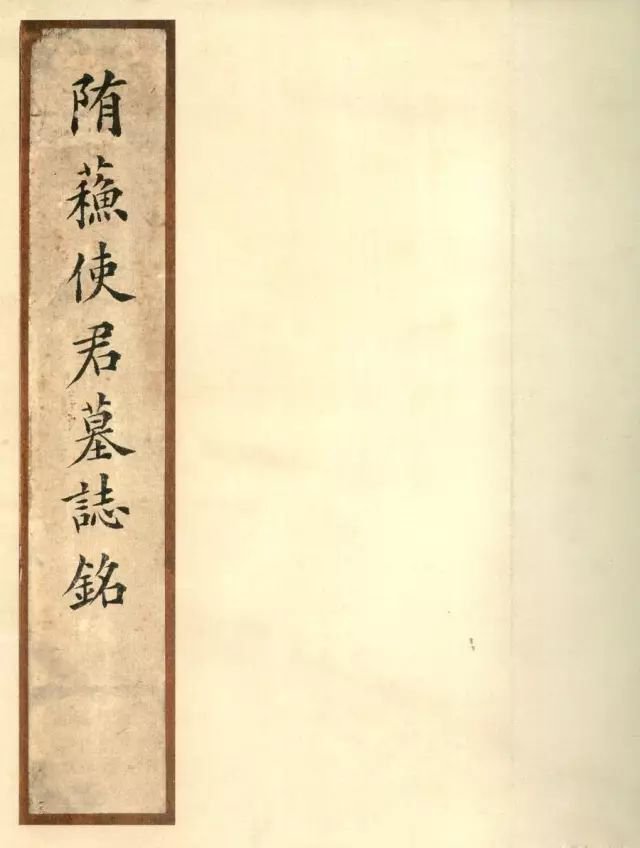 隋蘓使君墓誌銘